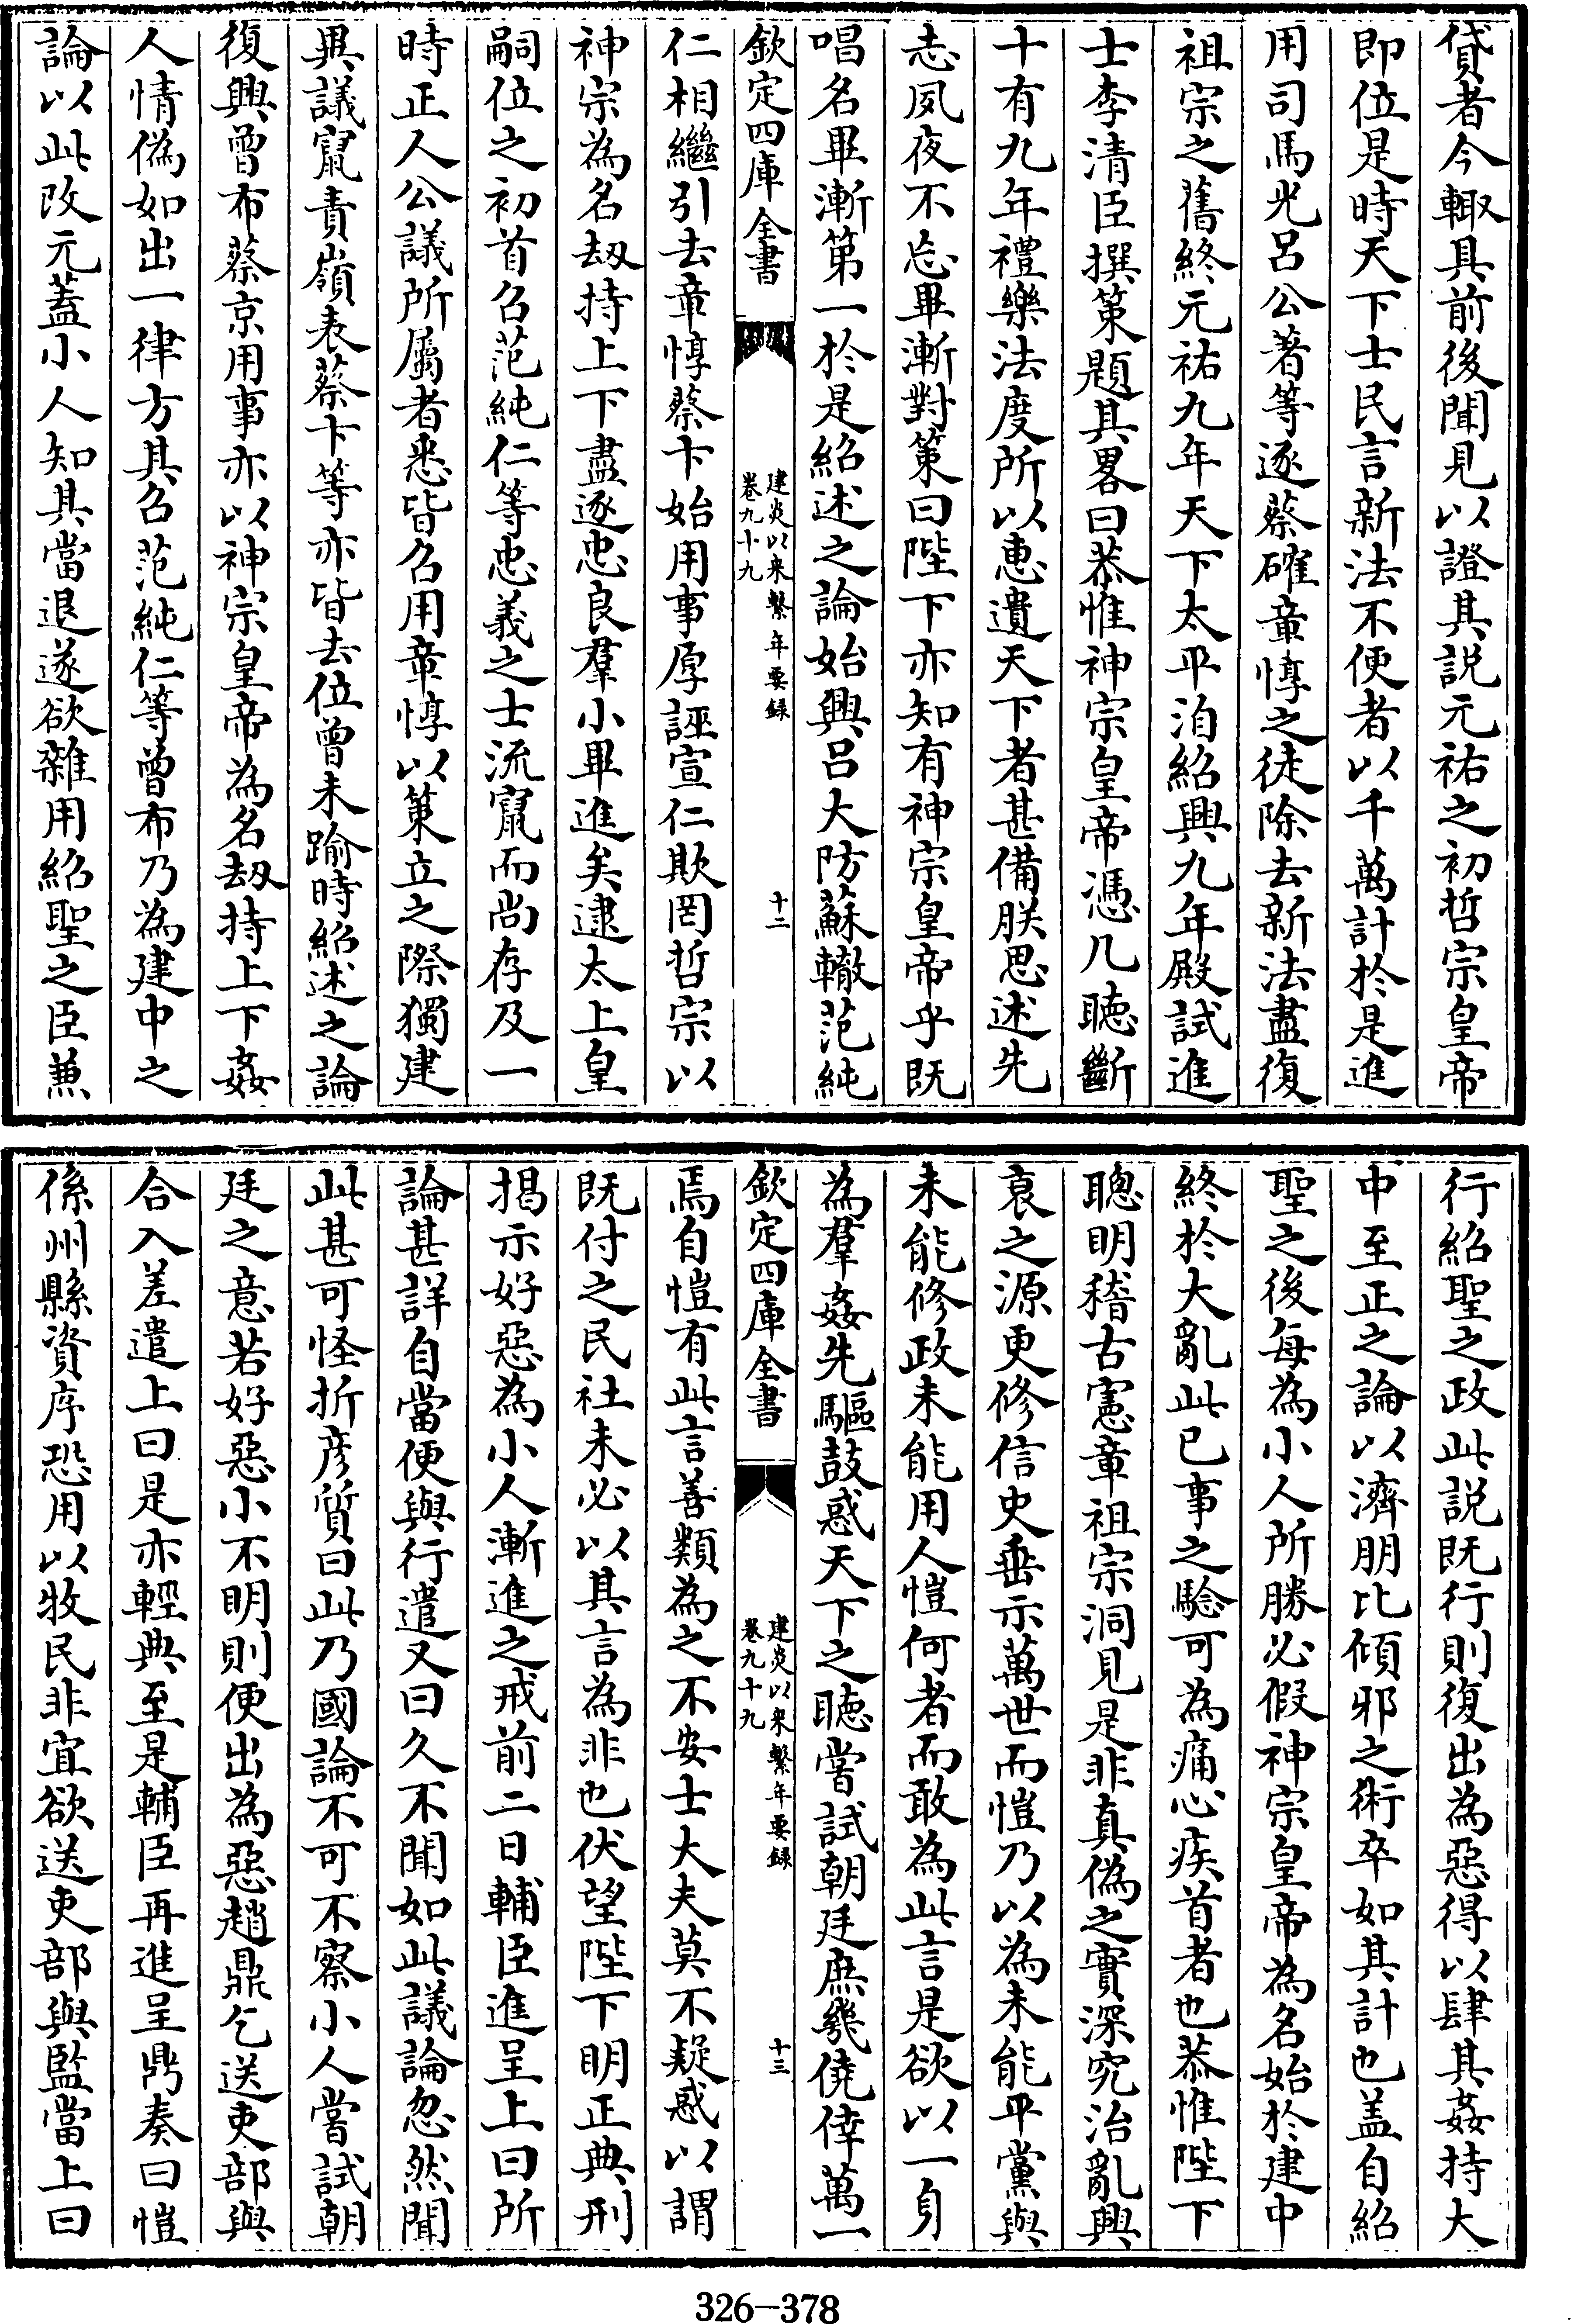 貸者今輙具前後聞見以證其説元祐之初哲宗皇帝
即位是時天下士民言新法不便者以千萬計於是進
用司馬光吕公著等逐蔡確章惇之徒除去新法盡復
祖宗之舊終元祐九年天下太平洎紹興九年殿試進
士李清臣撰策題其畧曰恭惟神宗皇帝憑几聽斷
十有九年禮樂法度所以惠遺天下者甚備朕思述先
志夙夜不忘畢漸對策曰陛下亦知有神宗皇帝乎既
唱名畢漸第一於是紹述之論始興吕大防蘇轍范純
欽定四庫全書
建炎以來繫年要録
卷九十九
十二
仁相繼引去章惇蔡卞始用事厚誣宣仁欺罔哲宗以
神宗為名刼持上下盡逐忠良羣小畢進矣逮太上皇
嗣位之初首召范純仁等忠義之士流竄而尚存及一
時正人公議所屬者悉皆召用章惇以策立之際獨建
異議竄責嶺表蔡卞等亦皆去位曾未踰時紹述之論
復興曾布蔡京用事亦以神宗皇帝為名刼持上下姦
人情偽如出一律方其召范純仁等曾布乃為建中之
論以此改元蓋小人知其當退遂欲雜用紹聖之臣兼
行紹聖之政此説既行則復出為惡得以肆其姦持大
中至正之論以濟朋比傾邪之術卒如其計也蓋自紹
聖之後每為小人所勝必假神宗皇帝為名始於建中
終於大亂此已事之驗可為痛心疾首者也恭惟陛下
聰明稽古憲章祖宗洞見是非真偽之實深究治亂興
衰之源更修信史垂示萬世而愷乃以為未能平黨與
未能修政未能用人愷何者而敢為此言是欲以一身
為羣姦先驅鼓惑天下之聽嘗試朝廷庶幾僥倖萬一
欽定四庫全書
建炎以來繫年要録
卷九十九
十三
焉自愷有此言善類為之不安士大夫莫不疑惑以謂
既付之民社未必以其言為非也伏望陛下明正典刑
揭示好惡為小人漸進之戒前二日輔臣進呈上曰所
論甚詳自當便與行遣又曰久不聞如此議論忽然聞
此甚可怪折彦質曰此乃國論不可不察小人嘗試朝
廷之意若好惡小不明則便出為惡趙鼎乞送吏部與
合入差遣上曰是亦輕典至是輔臣再進呈鼎奏曰愷
係州縣資序恐用以牧民非宜欲送吏部與監當上曰
326-378